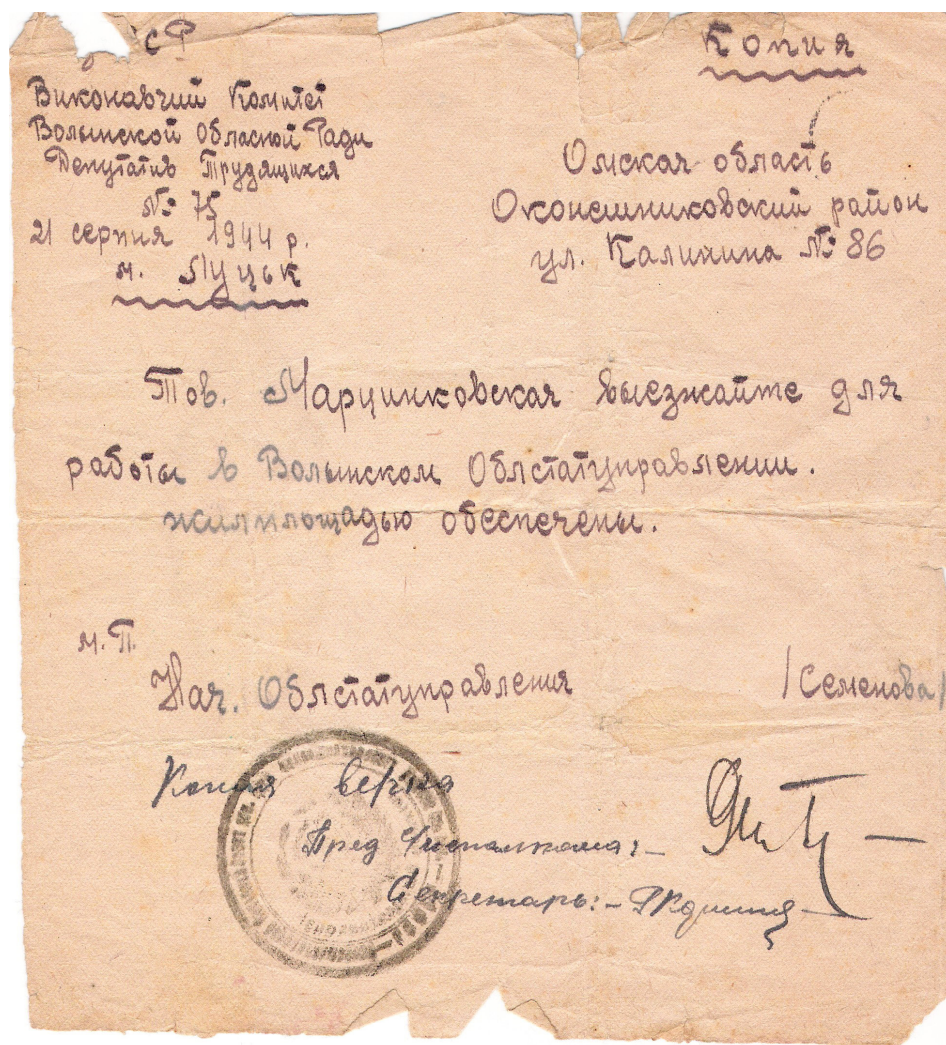 Копия
Виконавчий Комитет
Волынской Обласной Ради
Депутатив Трудящихся
№ 75
21 серпня 1944 р.
м. Луцьк
Омская область
Оконешниковский район
ул. Калинина № 86
Тов. Марцинковская выезжайте для
работы в Волынском Облстатуправлении.
жилплощадью обеспечены.
м.П.
Нач. Облстатуправления /Семенова/
Копия верна
Пред Исполкома:-
Секретарь:-